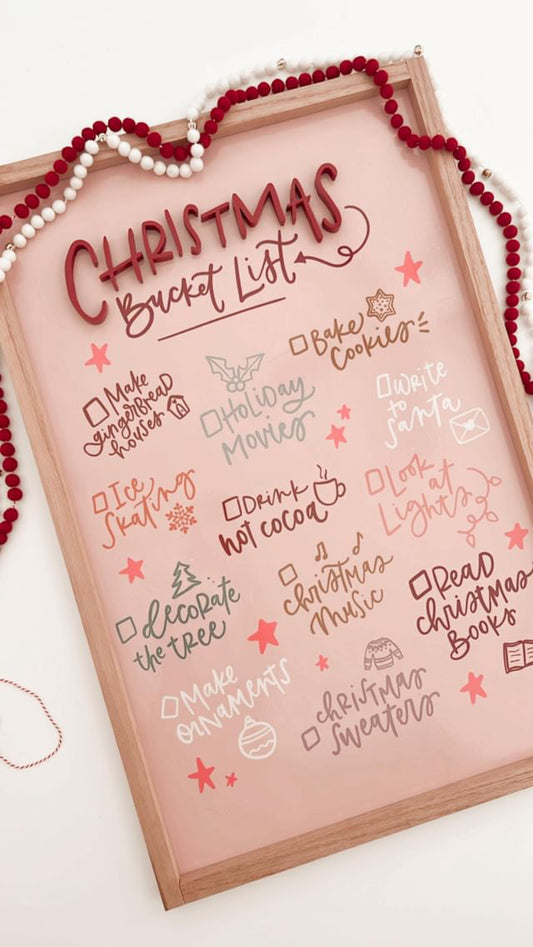 CHRISTMAS
Bucket List
Bake
Cookies
Make
gingerbread
houses
Holiday
Movies
Write
to
Santa
Ice
Skating
Drink
hot cocoa
Look at
Lights
decorate
the tree
christmas
Music
Read
christmas
Books
Make
ornaments
christmas
sweaters